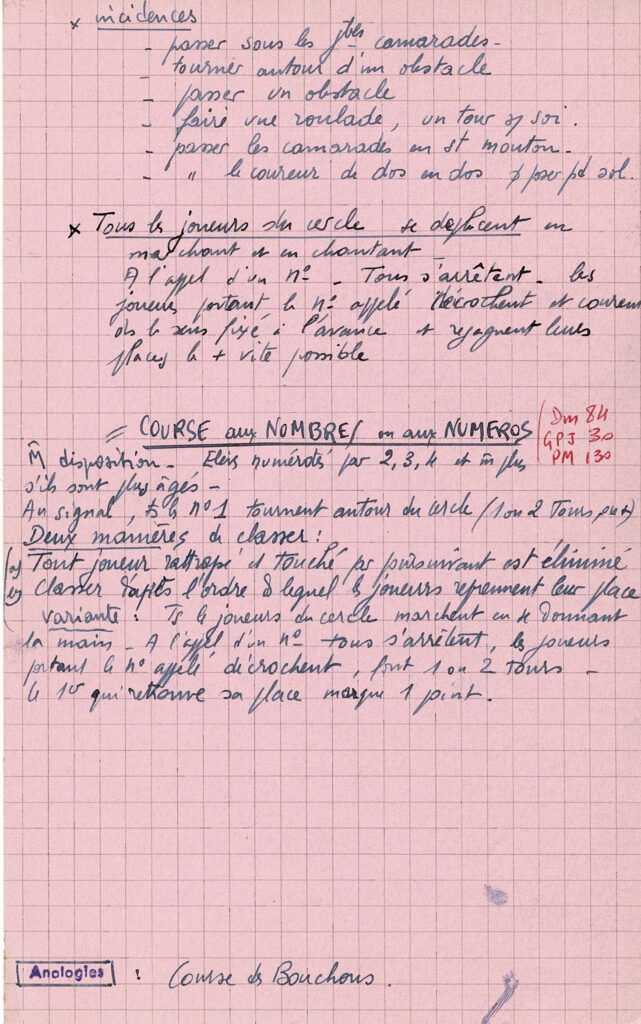 x incidences
- passer sous les jbes camarades -
- tourner autour d'un obstacle
- passer un obstacle
- faire une roulade, un tour s/ soi.
- passer les camarades en st mouton.
- " le coureur de dos en dos pser pd sol.
x Tous les joueurs du cercle se déplacent en
marchant et en chantant
A l'appel d'un n° - Tous s'arrêtent - les
joueurs portant le n° appelé décrochent et courent
ds le sens fixé à l'avance et regagnent leurs
places le + vite possible
= COURSE aux NOMBRES ou aux NUMEROS
Dm 84
GPJ 30
PM 130
M̂ disposition - Elèves numérotés par 2, 3, 4 et m̂ plus
s'ils sont plus âgés -
Au signal, ts les n° 1 tournent autour du cercle (1 ou 2 Tours, ou +)
Deux manières de classer :
a) Tout joueur rattrapé et touché par poursuivant est éliminé
b) Classer d'après l'ordre ds lequel les joueurs reprennent leur place
variante : Ts les joueurs du cercle marchent en se donnant
la main - A l'appel d'un n° tous s'arrêtent, les joueurs
portant le n° appelé décrochent, font 1 ou 2 tours -
le 1er qui retrouve sa place marque 1 point.
Analogies : Course des Bouchons.